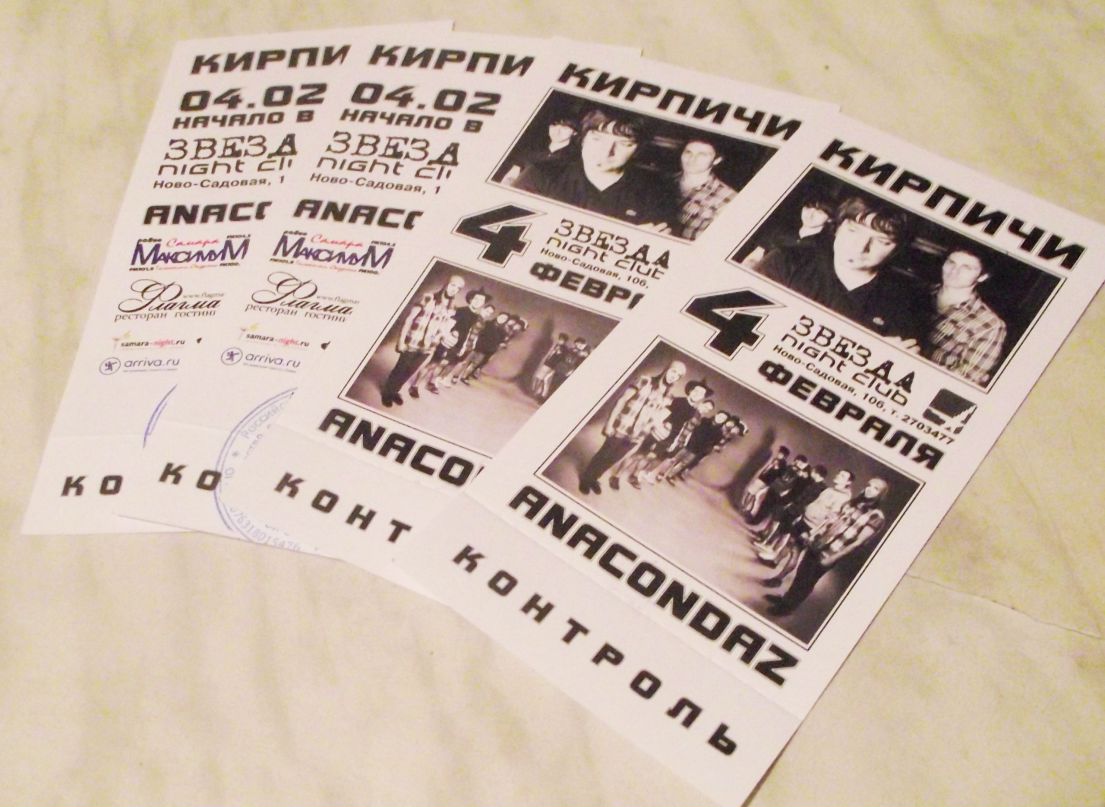 КИРПИ
04.02
НАЧАЛО В
ЗВЕЗДА
night cl
Ново-Садовая, 1
ANACO
радио Самара
МаксимуМ
Флагма
www.flagma
ресторан гостини
samara-night.ru
arriva.ru
К О
КИРПИ
04.02
НАЧАЛО В
ЗВЕЗДА
night cl
Ново-Садовая, 1
ANACO
радио Самара
МаксимуМ
Флагма
www.flagma
ресторан гостини
samara-night.ru
arriva.ru
К О
КИРПИЧИ
4
ЗВЕЗДА
night club
Ново-Садовая, 106,
ФЕВРА
ANACO
К О Н Т
КИРПИЧИ
4
ЗВЕЗДА
night club
Ново-Садовая, 106, т. 2703477
ФЕВРАЛЯ
ANACONDAZ
К О Н Т Р О Л Ь